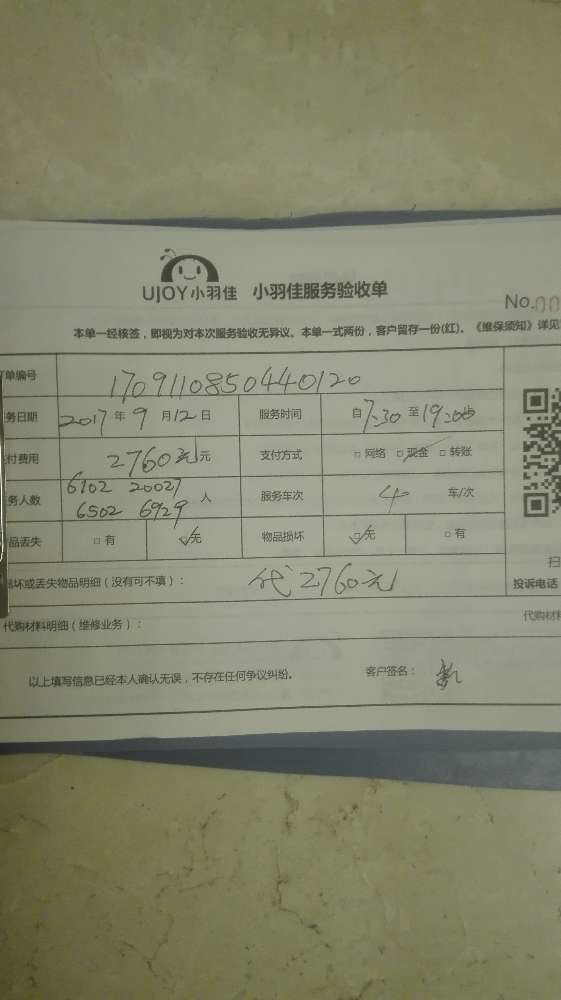 UJOY小羽佳 小羽佳服务验收单
No.00
本单一经核签，即视为对本次服务验收无异议。本单一式两份，客户留存一份(红)。《维保须知》详见
单编号 1709110850440120
务日期 2017年9月12日 服务时间 自7:30至19:00
付费用 2760元元 支付方式 □网络 □现金 □转账
务人数 6102 20027 人 服务车次 4 车/次
6502 6929
品丢失 □有 □无 物品损坏 □无 □有
坏或丢失物品明细（没有可不填）： 代2760元
扫
投诉电话
代购材料明细（维修业务）： 代购材料
以上填写信息已经本人确认无误，不存在任何争议纠纷。 客户签名：